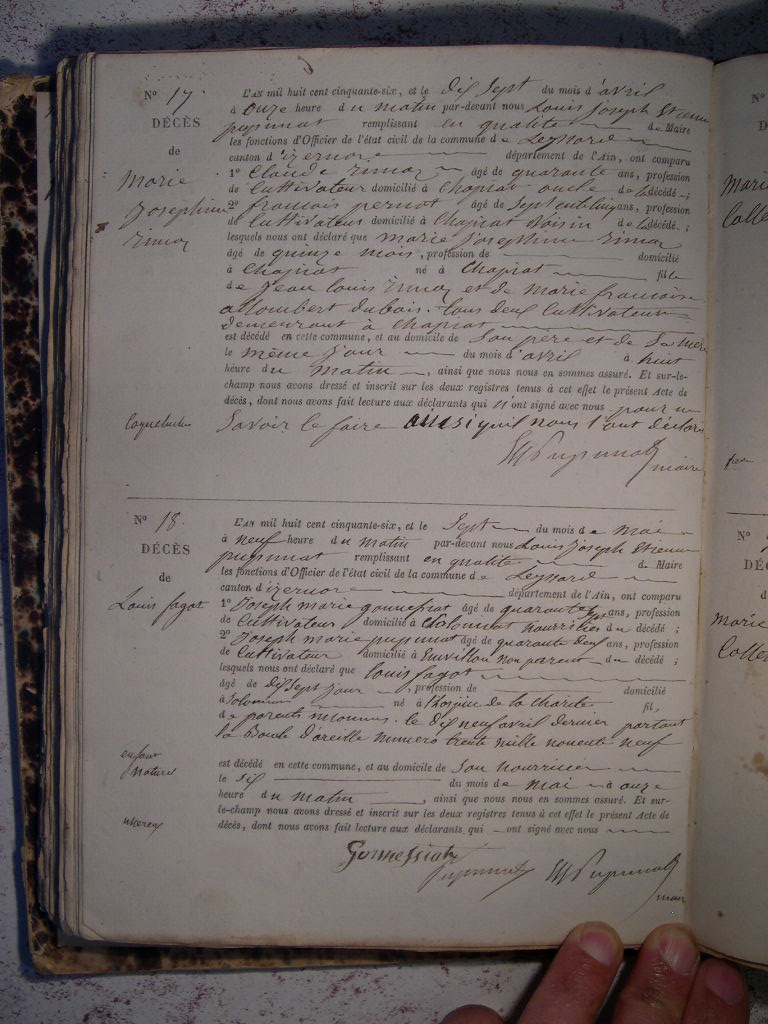 N° 17.
DÉCÈS
de
Marie
Josephine
L'AN mil huit cent cinquante-six, et le dix Sept du mois d'avril
à onze heure du matin par-devant nous Louis joseph Etienne
remplissant en qualité de Maire
les fonctions d'Officier de l'état civil de la commune de Leyssard
canton d'izernore département de l'Ain, ont comparu
1° Claude âgé de quarante ans, profession
de Cultivateur domicilié à Chapiat oncle de la décédé ;
2° francois pernot âgé de Sept ans, profession
de Cultivateur domicilié à Chapiat Voisin de la décédé ;
lesquels nous ont déclaré que marie Josephine
âgé de quinze mois, profession de domicilié
à Chapiat né à Chapiat fille
de Jean Louis et de marie francoise
allombert dubois. tous deux Cultivateur
demeurant à chapiat
est décédé en cette commune, et au domicile de Son père et de Sa mere
le même jour du mois d'avril à huit
heure du matin, ainsi que nous nous en sommes assuré. Et sur-le-
champ nous avons dressé et inscrit sur les deux registres tenus à cet effet le présent Acte de
décès, dont nous avons fait lecture aux déclarants qui n'ont signé avec nous pour ne
Coqueluche
Savoir le faire ainsi qu'il nous l'ont déclaré
maire
N° 18.
DÉCÈS
de
Louis fagot
L'AN mil huit cent cinquante-six, et le Sept du mois de Mai
à neuf heure du matin par-devant nous Louis joseph Etienne
remplissant en qualité de Maire
les fonctions d'Officier de l'état civil de la commune de Leyssard
canton d'izernore département de l'Ain, ont comparu
1° Joseph marie gonnessiat âgé de quarante Sept ans, profession
de Cultivateur domicilié à Solomiat nourricier du décédé ;
2° Joseph marie âgé de quarante deux ans, profession
de Cultivateur domicilié à non parent du décédé ;
lesquels nous ont déclaré que Louis fagot
âgé de dix Sept jour, profession de domicilié
à Solomiat né à l'hospice de la charité fil,
de parents inconnus. le dix neuf avril dernier portant
la Boucle d'oreille numero trente mille nouvente neuf
enfant
Naturel
est décédé en cette commune, et au domicile de Son nourricier
le Six du mois de mai à onze
heure du matin, ainsi que nous nous en sommes assuré. Et sur-
le-champ nous avons dressé et inscrit sur les deux registres tenus à cet effet le présent Acte de
décès, dont nous avons fait lecture aux déclarants qui ont signé avec nous
Gonnessiat